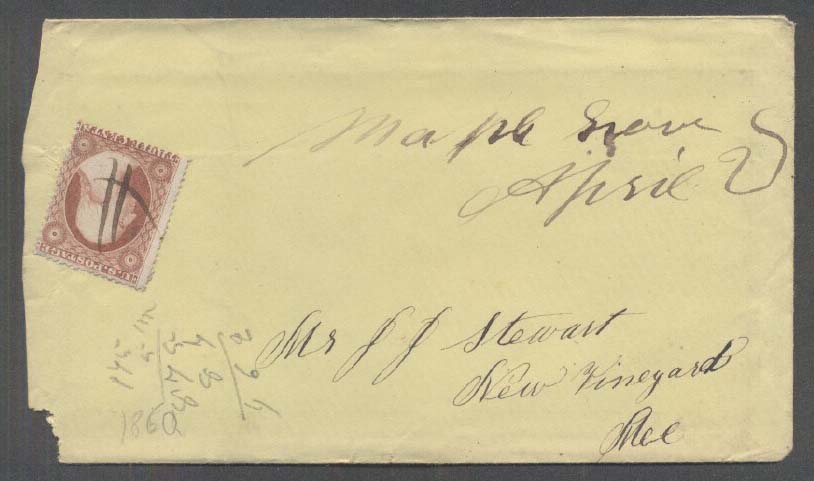 Maple Grove
April 25
Mr J J Stewart
New Vineyard
Me
U.S. POSTAGE
1860